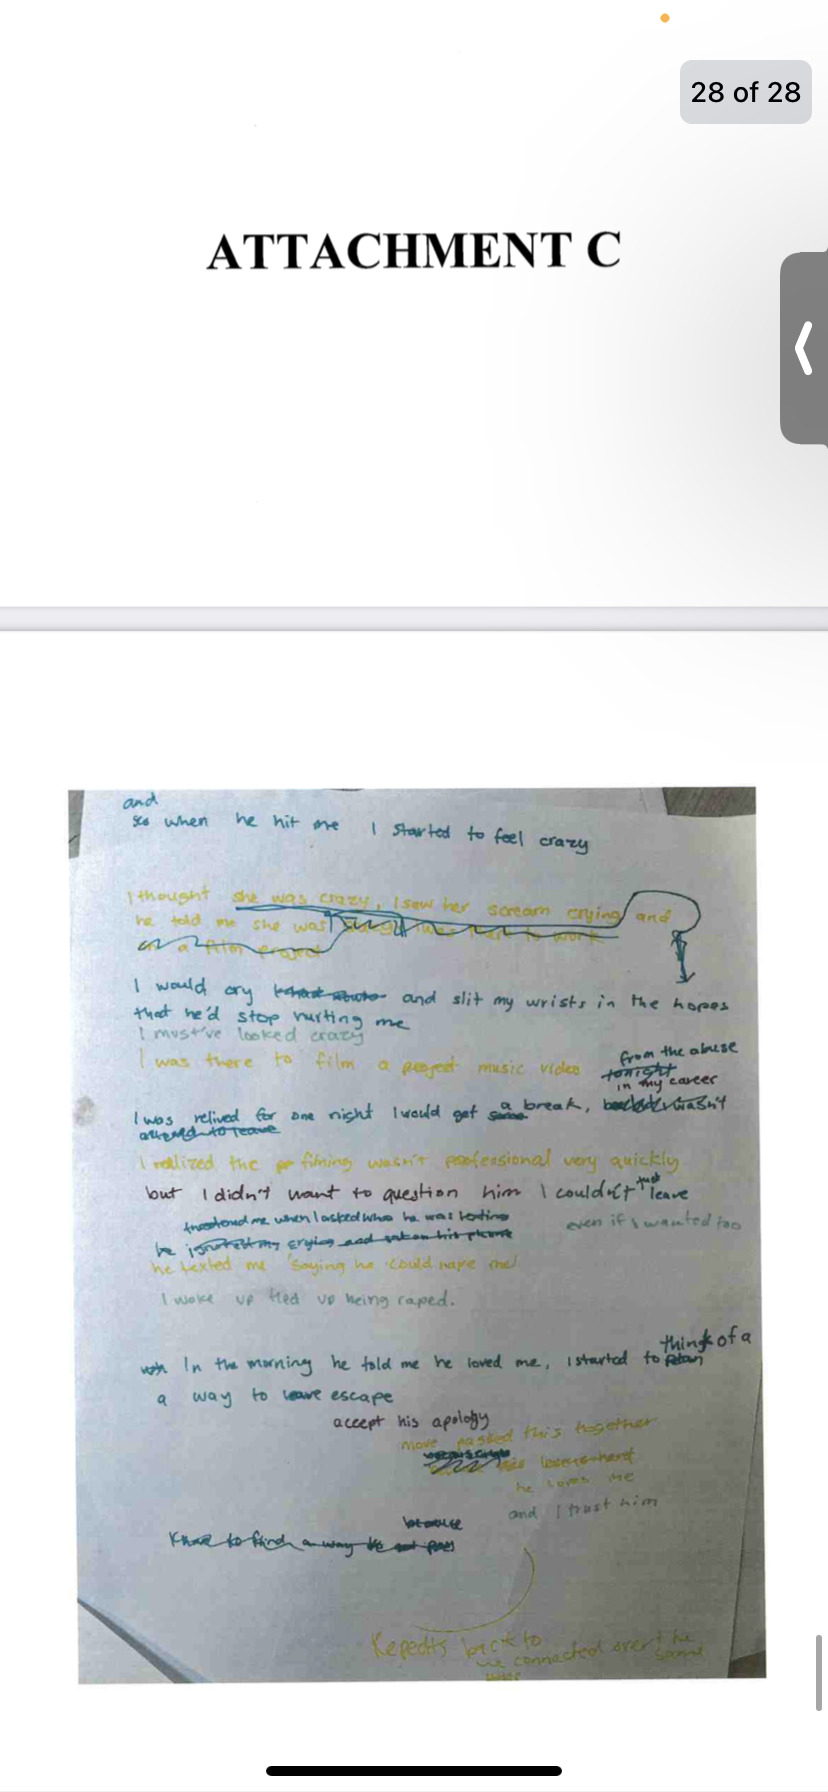 28 of 28
ATTACHMENT C
and
so when he hit me I started to feel crazy
I thought she was crazy, I saw her scream crying and
he told me she was
on a film project
I would cry and slit my wrists in the hopes
that he'd stop hurting me
I must've looked crazy
I was there to film a project music video
from the abuse
tonight
in my career
I was relived for one night I would get a break, wasn't
allowed to leave
I realized the filming wasn't professional very quickly
but I didn't want to question him I couldn't just leave
threatened me when I asked who he was texting
even if I wanted too
he ignored my crying and sat on his phone
he texted me saying he could rape me
I woke up tied up being raped.
think of a
In the morning he told me he loved me, I started to
a way to leave escape
accept his apology
move passed this together
he loves me
and I trust him
because
to find a way
Repeats back to
we connected over the